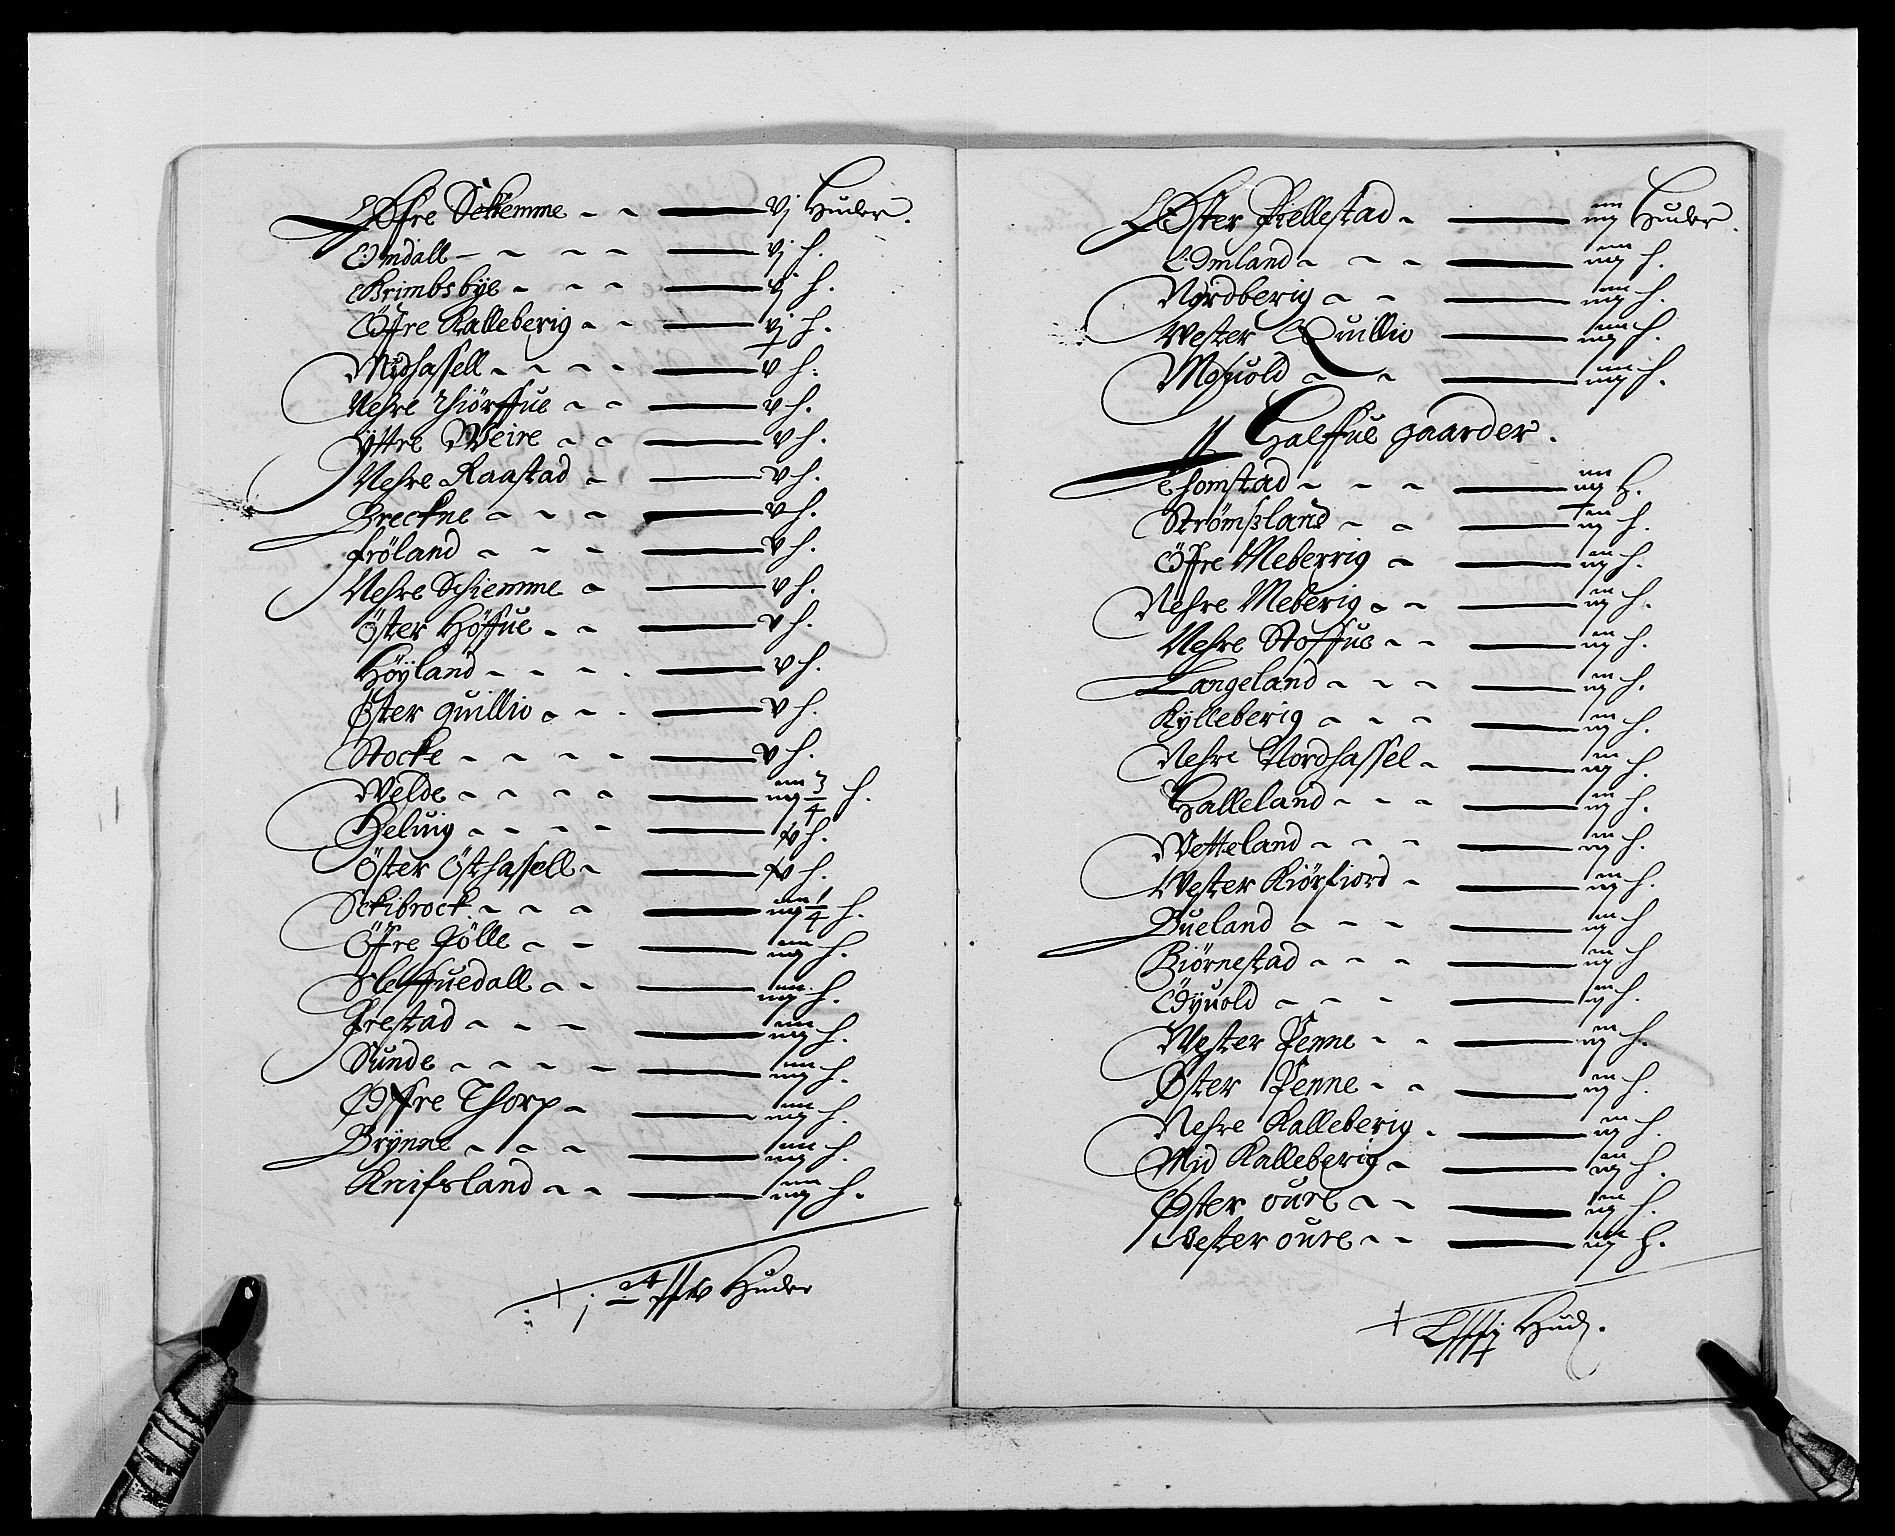 Øfre Schiemme - - vj Huder.
Omdall - - - - vj h.
Grimbsbÿe - - - vj h.
Öffre Kalleberig - - vj h.
Midhassell - - - - v h.
Nehre Thiörffue - - v h.
Ÿttre Weire - - v h.
Nehre Raastad - v h.
Breckne - - - v h.
fröland - - - v h.
Nehre Schiemme - v h.
Öster Höffue - - v h.
Höÿland - - - - v h.
Öster quillio - - - v h.
Stocke - - - - v h.
Welde - - - - iiij 3/4 h.
Heluig - - - - v h.
Öster Östhassell - v h.
Sckibrock - - - iiij 1/4 h.
Öffre Jölle - - iiij h.
Sleffuedall - - iiij h.
Prestad - - - iiij h.
Sunde - - - - iiij h.
Offre Thorp - iiij h.
Brÿnne - - - iiij h.
Knifsland - - iiij h.
Huder
Öster Pellestad - iiij Huder.
Omland - - - iiij h.
Nordberig - - iiij h.
Wester Quillio iiij h.
Mosuold - - iiij h.
Halffue gaarder.
Thomstad - - - iiij H.
Strömsland - - iij h.
Öffre Meberrig - iij h.
Nehre Meberig - - iij h.
Nehre Stoffue - - iij h.
Langeland - - - iij h.
Kÿlleberig - - - iij h.
Nehre Nordhassel - iij h.
Halleland - - - iij h.
Wetteland - - - iij h.
Wester Kiörfiord - iij h.
Bueland - - - iij h
Biörnestad - - - iij h
Öÿuold - - - iij h.
Wester Penne - - iij h.
Öster Penne - - iij h.
Nehre Kalleberig - iij h.
Mid Kalleberig - iij h.
Öster oure - - iij h.
Wester oure - - iij h.
Hud.